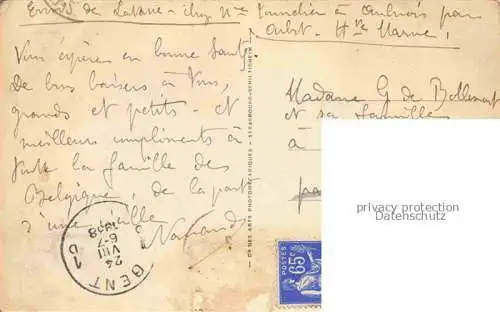 Envoi de Lavaux - chez Mme à Aulnois par
Hte Marne,
Vous espère en bonne Santé
De bons baisers à Vous,
grands et petits - et
meilleurs compliments à
toute la famille des
Belgique, de la part
d'une famille
Madame G de
et sa famille
à
BENT
24
VIII
6-7
1938
1 D
Cie DES ARTS PHOTOMÉCANIQUES - STRASBOURG-SCHILTIGHEIM
POSTES
65c
privacy protection
Datenschutz